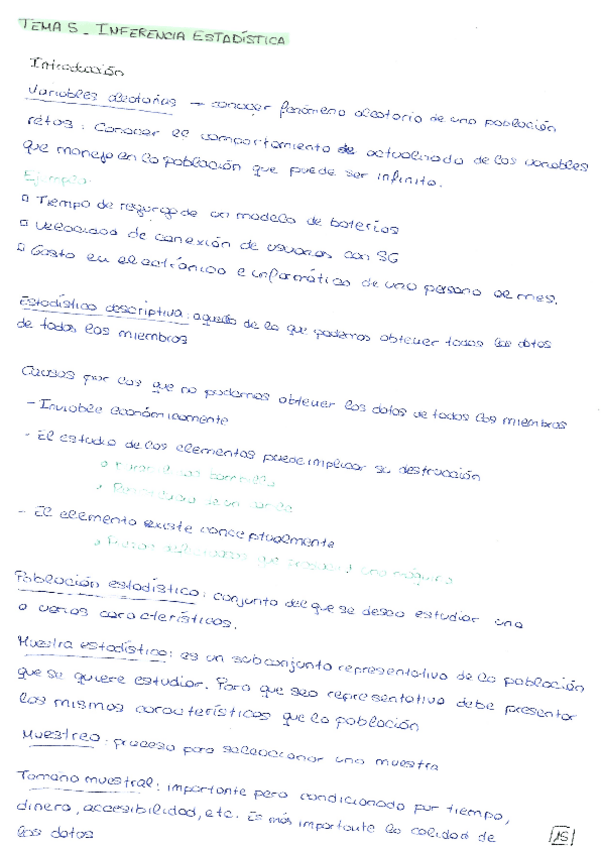 TEMA 5_ INFERENCIA ESTADÍSTICA
Introducción
Variables aleatorias → conocer fenómeno aleatorio de una población
retos: Conocer el comportamiento de actualizado de las variables
que manejo en la población que puede ser infinito.
Ejemplo:
Tiempo de recarga de un modelo de baterías
Velocidad de conexión de usuarios con 5G
Gasto en electrónica e informática de una persona al mes.
Estadística descriptiva: aquella de la que podemos obtener todos los datos
de todos los miembros
Causas por las que no podamos obtener los datos de todos los miembros
- Inviable económicamente
- El estudio de los elementos puede implicar su destrucción
- El elemento existe conceptualmente
Población estadística: conjunto del que se desea estudiar una
o varias características.
Muestra estadística: es un subconjunto representativo de la población
que se quiere estudiar. Para que sea representativa debe presentar
las mismas características que la población
Muestreo: proceso para seleccionar una muestra
Tamaño muestral: importante pero condicionado por tiempo,
dinero, accesibilidad, etc. Es más importante la calidad de
los datos
15